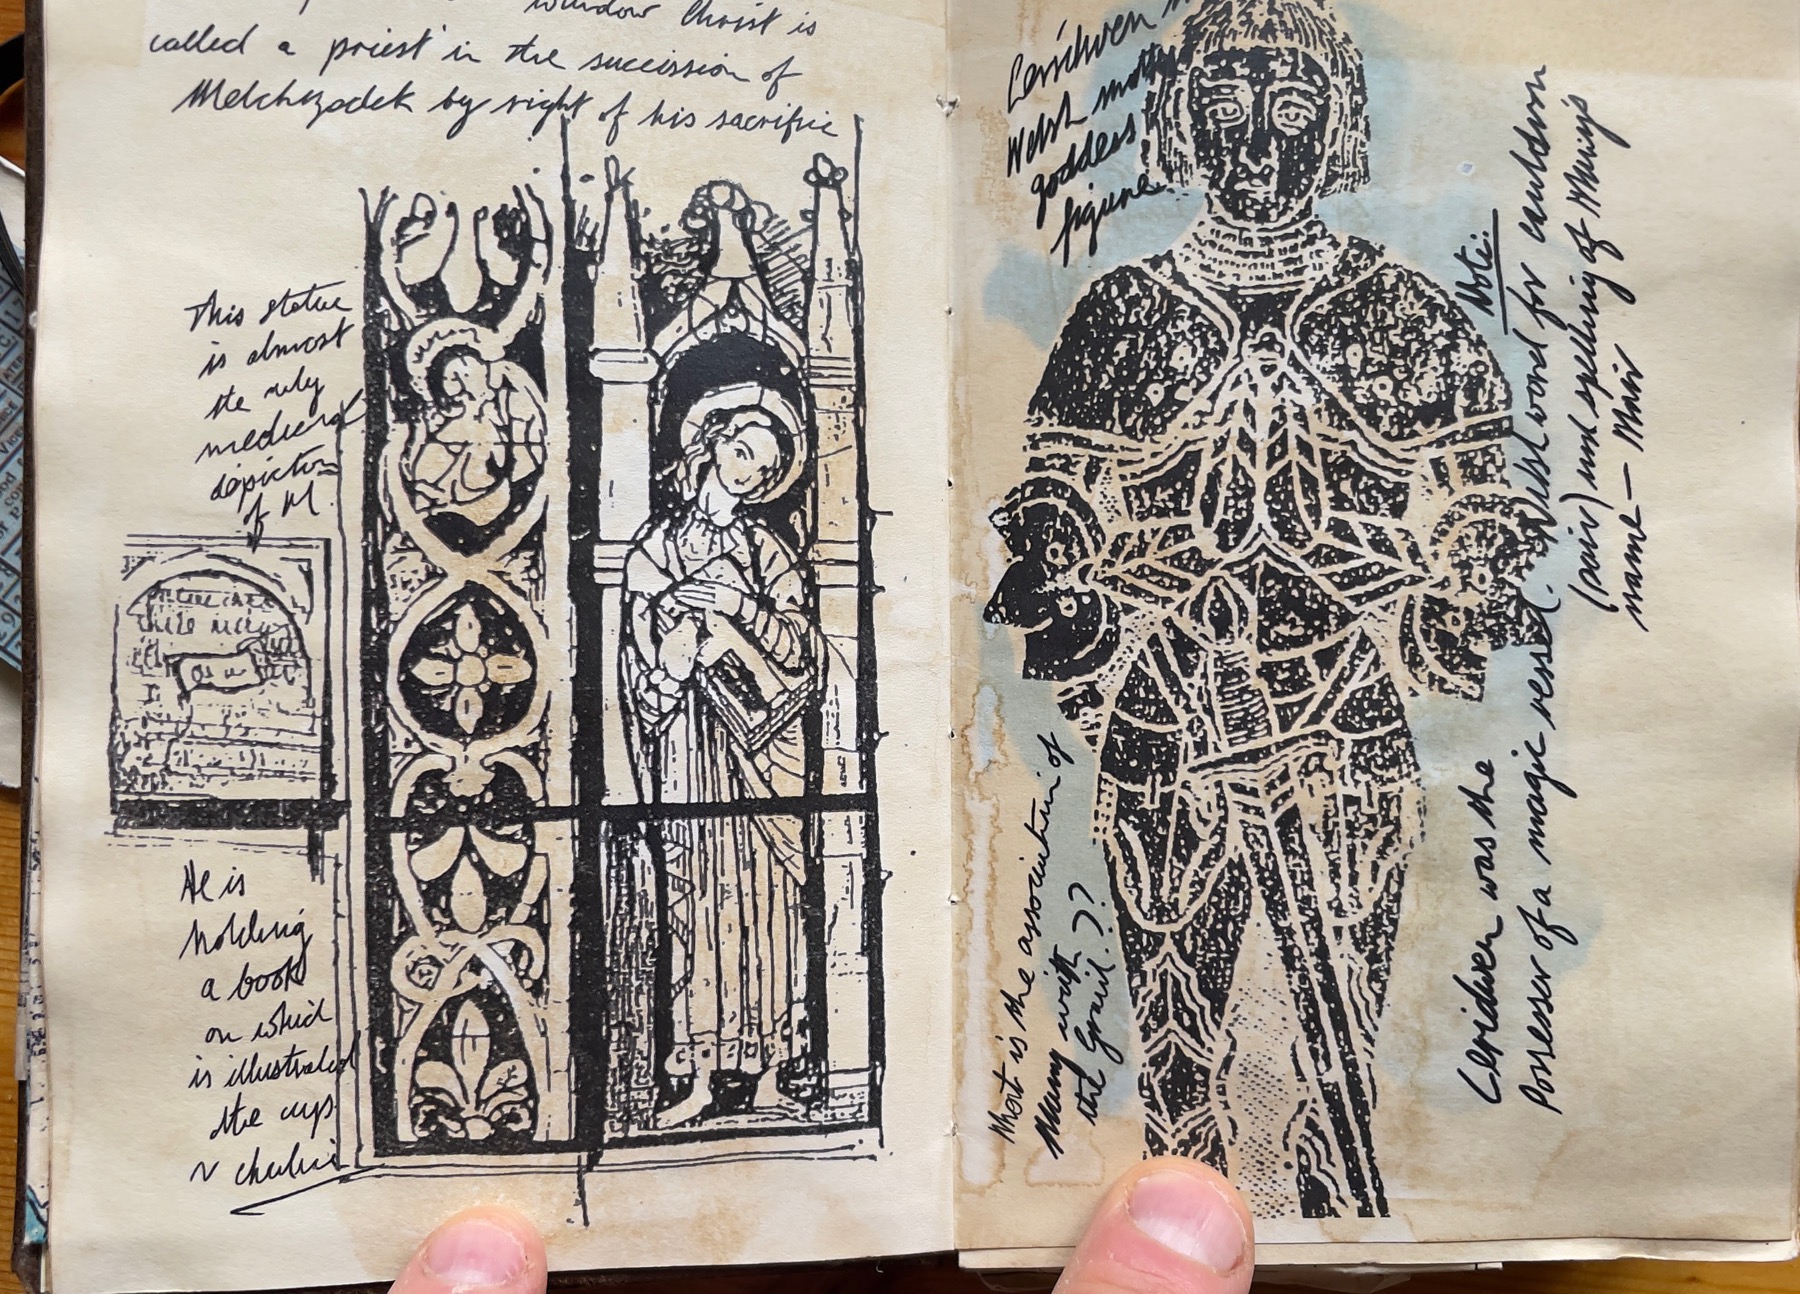 window Christ is
called a priest in the succission of
Melchizodek by right of his sacrifice
This statue
is almost
the only
medieval
depiction
of M.
He is
holding
a book
on which
is illustrated
the cup
Cerridwen
Welsh mother
goddess
figure.
Note:
Welsh word for cauldron
(pair) and spelling of Mary's
name — Mair
What is the association of
Mary with
the Grail.??
Ceridwen was the
Possesser of a magic vessel.